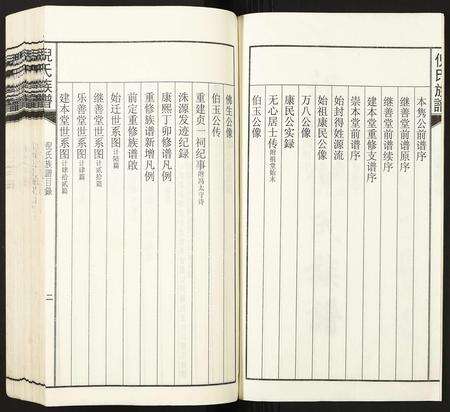 倪氏族谱
本隽公前谱序
继善堂前谱原序
继善堂前谱续序
建本堂重修支谱序
崇本堂前谱序
始封得姓源流
始祖康民公像
万八公像
康民公实录
无心居士传
伯玉公像
佛生公像
伯玉公传
重建贞一祠纪事
洙源发迹纪录
康熙丁卯修谱凡例
重修族谱新增凡例
前定重修族谱啟
始迁世系图
继善堂世系图
乐善堂世系图 计肆篇
建本堂世系图 计肆拾贰篇
倪氏族谱
倪氏族谱目录
二